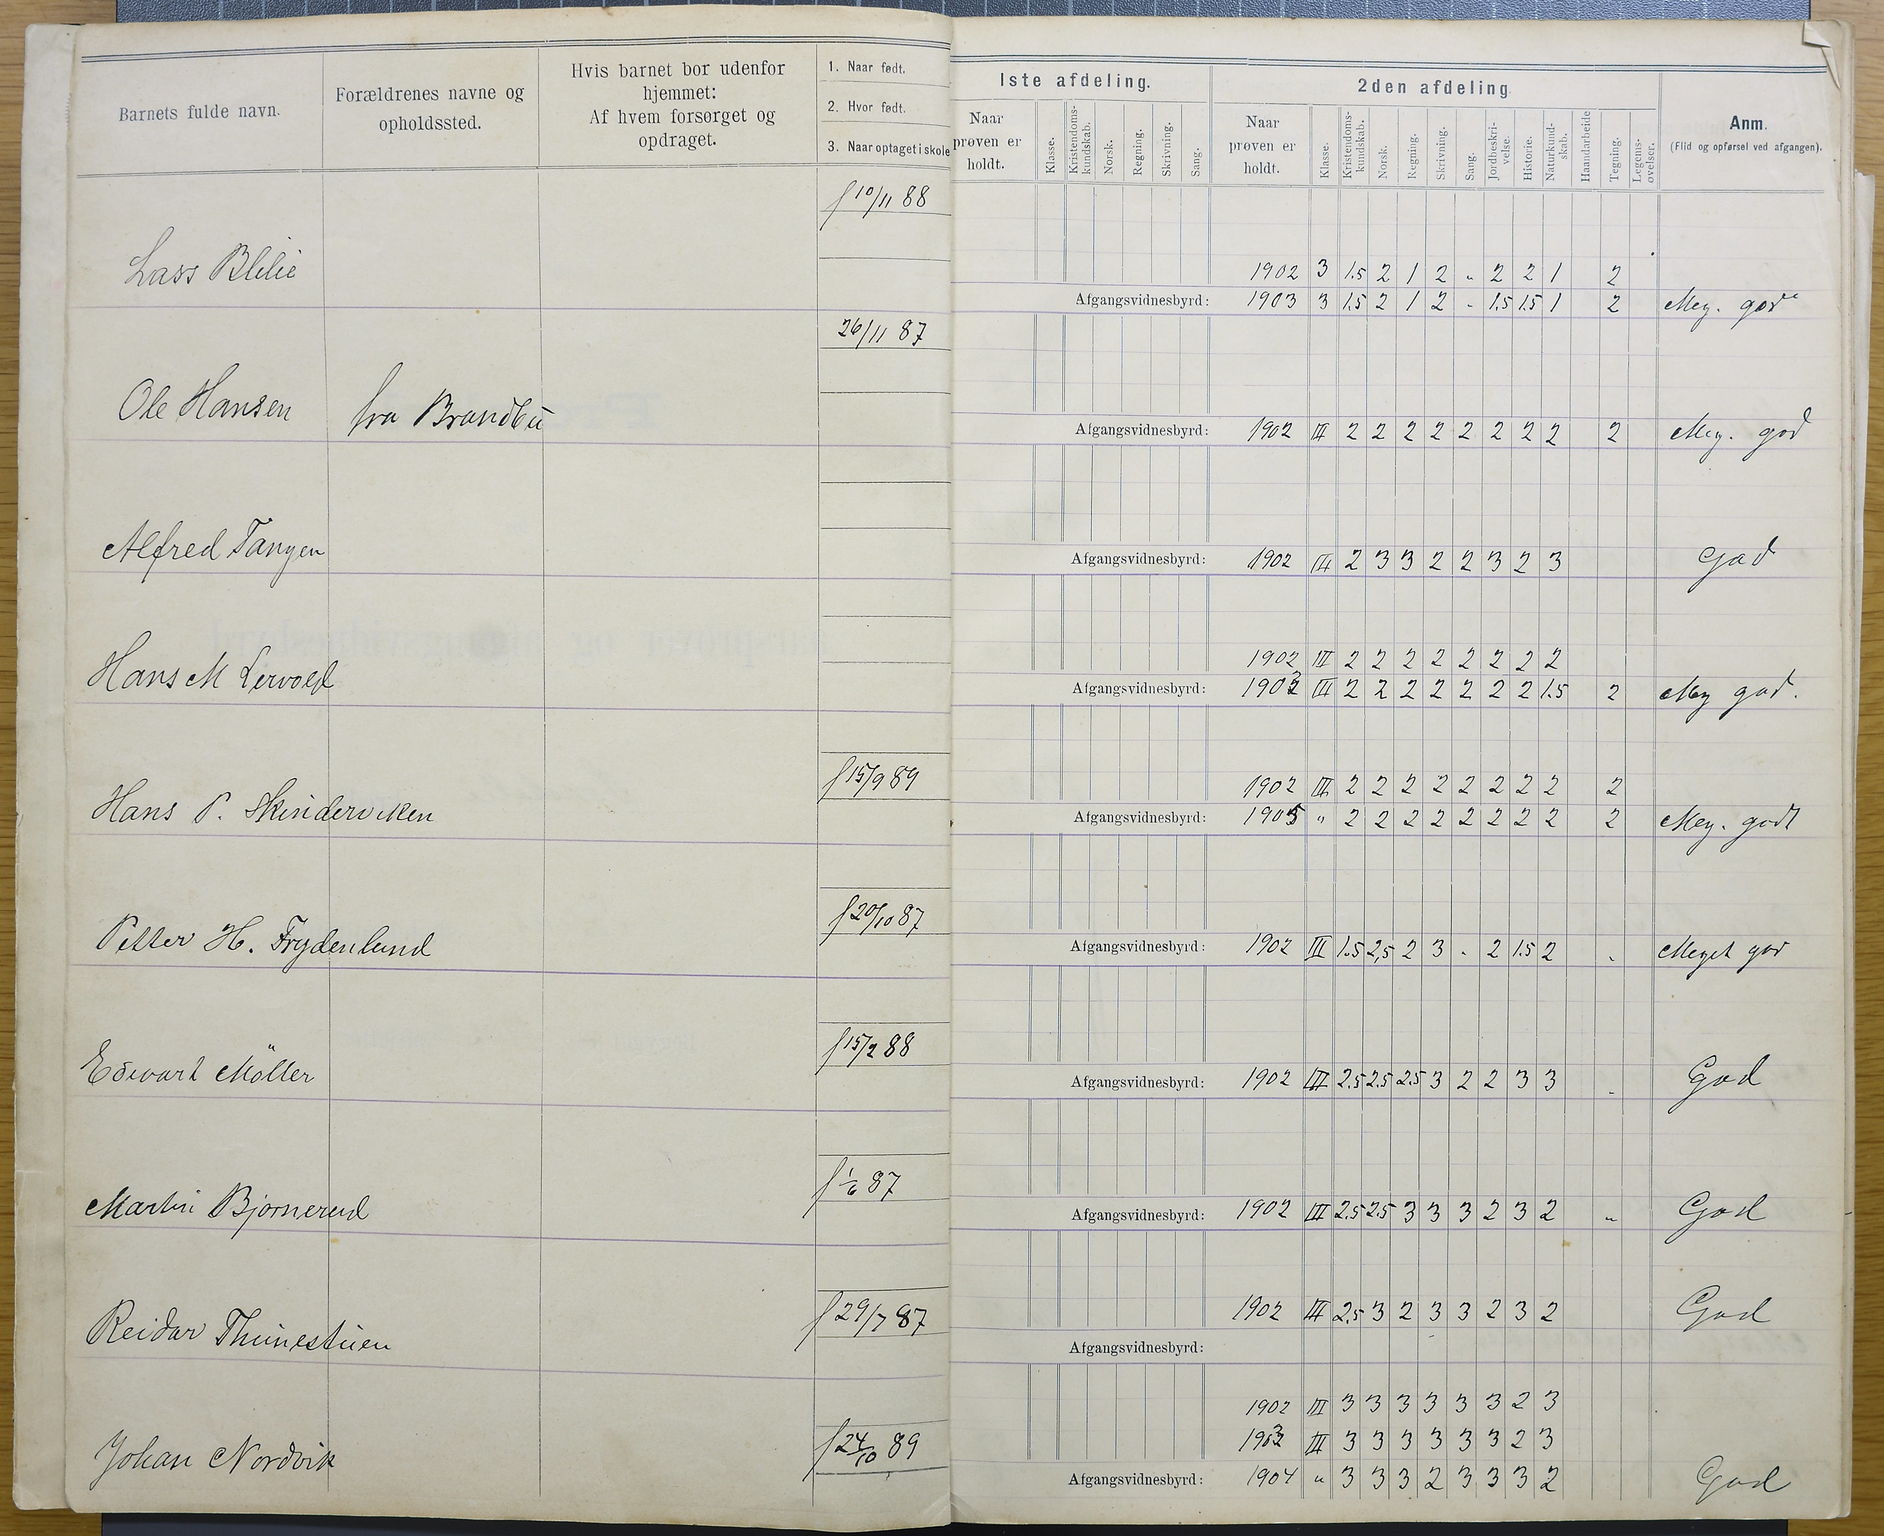 Barnets fulde navn.
Forældrenes navne og
opholdssted.
Hvis barnet bor udenfor
hjemmet:
Af hvem forsørget og
opdraget.
1. Naar født.
2. Hvor født.
3. Naar optaget i skole
1ste afdeling.
Naar
prøven er
holdt.
Klasse.
Kristendoms-
kundskab.
Norsk.
Regning.
Skrivning.
Sang.
2den afdeling
Naar
prøven er
holdt.
Klasse.
Kristendoms-
kundskab.
Norsk.
Regning.
Skrivning.
Sang.
Jordbeskri-
velse.
Historie.
Naturkund-
skab.
Haandarbeide
Tegning.
Legems-
øvelser.
Anm.
(Flid og opførsel ved afgangen).
f 10/11 88
Lass Blilie
1902 3 1.5 2 1 2 „ 2 2 1 2
Afgangsvidnesbyrd: 1903 3 1.5 2 1 2 - 1.5 1.5 1 2 Meg. god
26/11 87
Ole Hansen fra Brandbu
Afgangsvidnesbyrd: 1902 III 2 2 2 2 2 2 2 2 2 Meg. god
Alfred Tangen
Afgangsvidnesbyrd: 1902 III 2 3 3 2 2 3 2 3 God
Hans M Lervold
1902 III 2 2 2 2 2 2 2 2
Afgangsvidnesbyrd: 1903 III 2 2 2 2 2 2 2 1.5 2 Meg god.
f 15/9 89
Hans P. Skinderviken
1902 III 2 2 2 2 2 2 2 2 2
Afgangsvidnesbyrd: 1905 „ 2 2 2 2 2 2 2 2 2 Meg. godt
f 20/10 87
Petter H. Frydenlund
Afgangsvidnesbyrd: 1902 III 1.5 2,5 2 3 - 2 1.5 2 - Meget god
f 15/2 88
Edwart Möller
Afgangsvidnesbyrd: 1902 III 2.5 2.5 2.5 3 2 2 3 3 - God
f 1/6 87
Martin Bjørnerud
Afgangsvidnesbyrd: 1902 III 2.5 2.5 3 3 3 2 3 2 „ God
f 29/7 87
Reidar Thunestuen
1902 III 2.5 3 2 3 3 2 3 2 God
Afgangsvidnesbyrd:
1902 III 3 3 3 3 3 3 2 3
f 24/10 89
Johan Nordvik
1903 III 3 3 3 3 3 3 2 3
Afgangsvidnesbyrd: 1904 „ 3 3 3 2 3 3 3 2 God